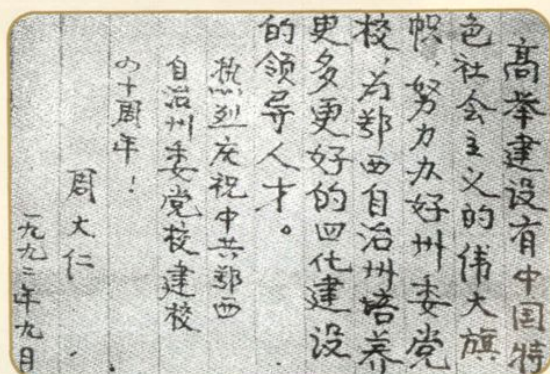 高举建设有中国特
色社会主义的伟大旗
帜，努力办好州委党
校，为鄂西自治州培养
更多更好的四化建设
的领导人才。
热烈庆祝中共鄂西
自治州委党校建校
四十周年！
周大仁
一九九二年九月